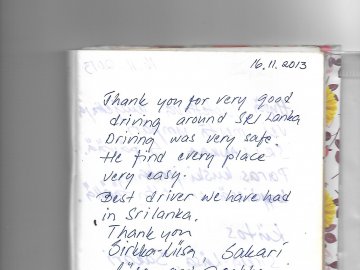 16.11.2013
Thank you for very good
driving around Sri Lanka
Driving was very safe.
He find every place
very easy.
Best driver we have had
in Srilanka.
Thank you
Sirkka-Liisa, Sakari